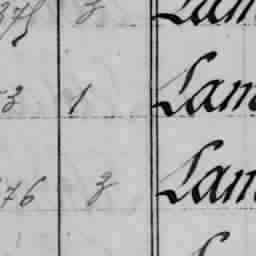 375 3 Lam
3 1 Lam
76 3 Lam